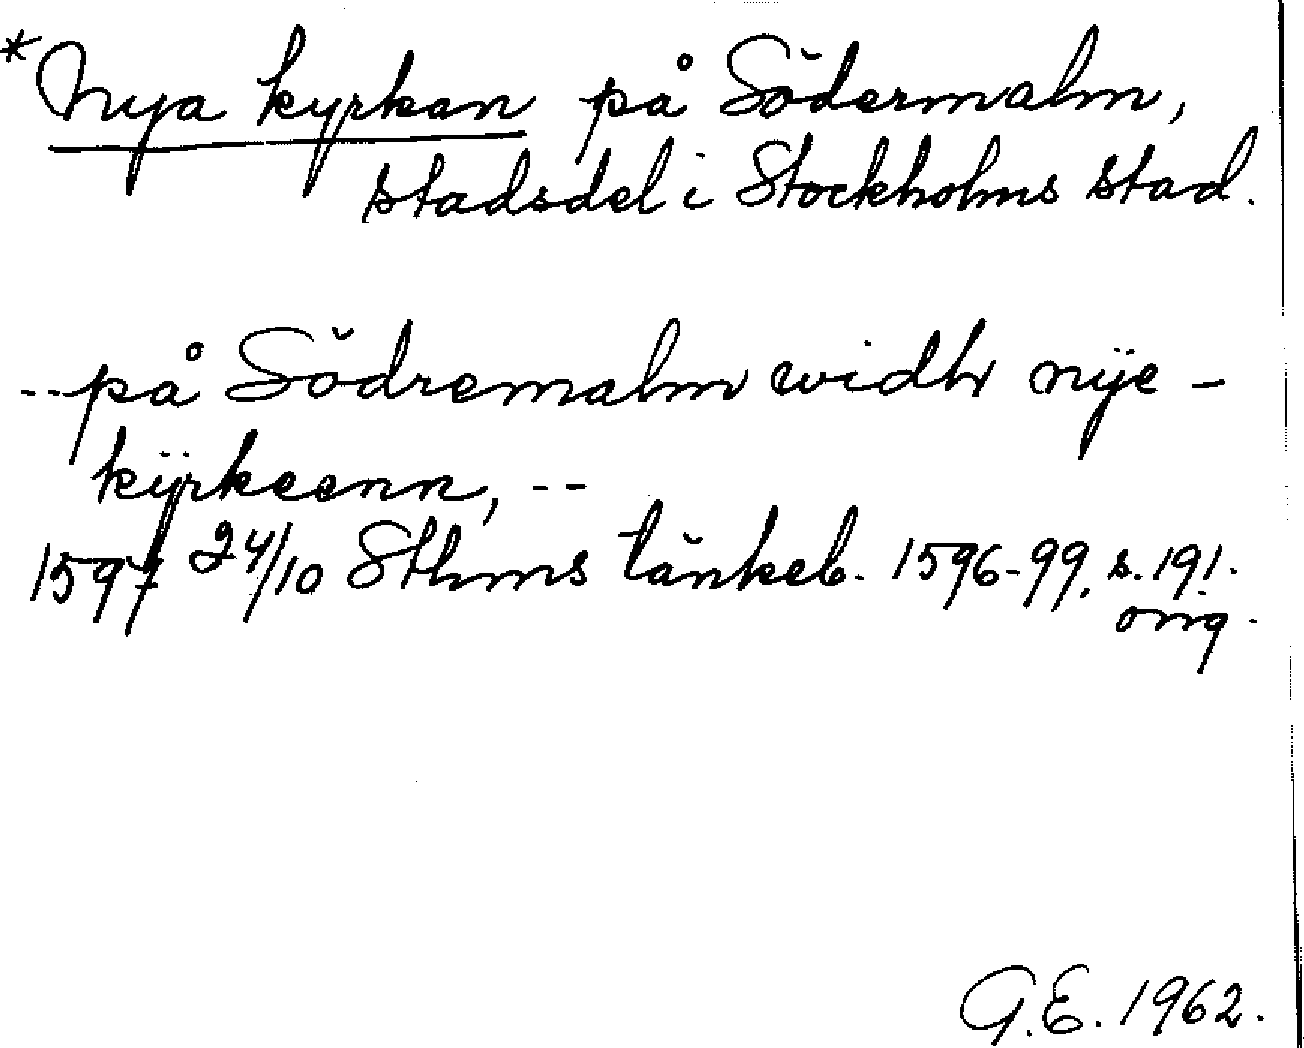 *Nya kyrkan på Södermalm,
stadsdel i Stockholms stad.
--på Södremalm widh nÿe-
kÿrkeenn, --
1597 24/10 Sthms tänkeb. 1596-99, s. 191.
orig.
G.E. 1962.